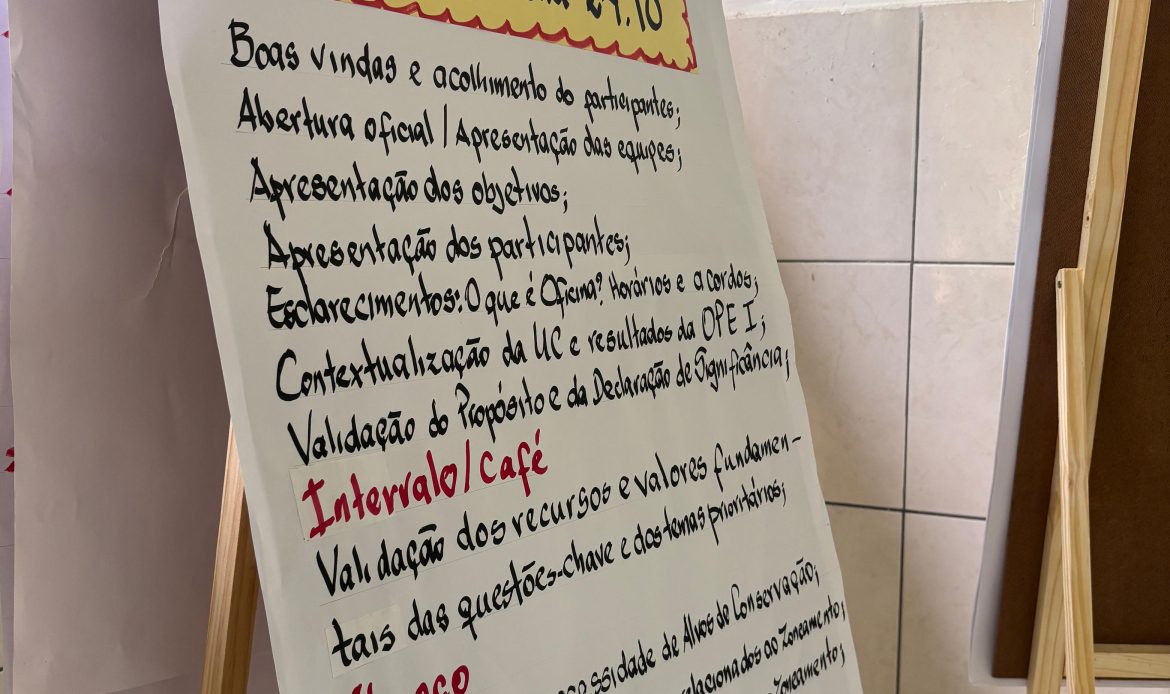 24.10
Boas vindas e acolhimento do participantes;
Abertura oficial / Apresentação das equipes;
Apresentação dos objetivos;
Apresentação dos participantes;
Esclarecimentos: O que é Oficina? Horários e acordos;
Contextualização da UC e resultados da OPE I;
Validação do Propósito e da Declaração de Significância;
Intervalo/Café
Validação dos recursos e valores fundamen-
tais das questões-chave e dos temas prioritários;
de Alvos de Conservação;
ao Zoneamento;
Zoneamento;